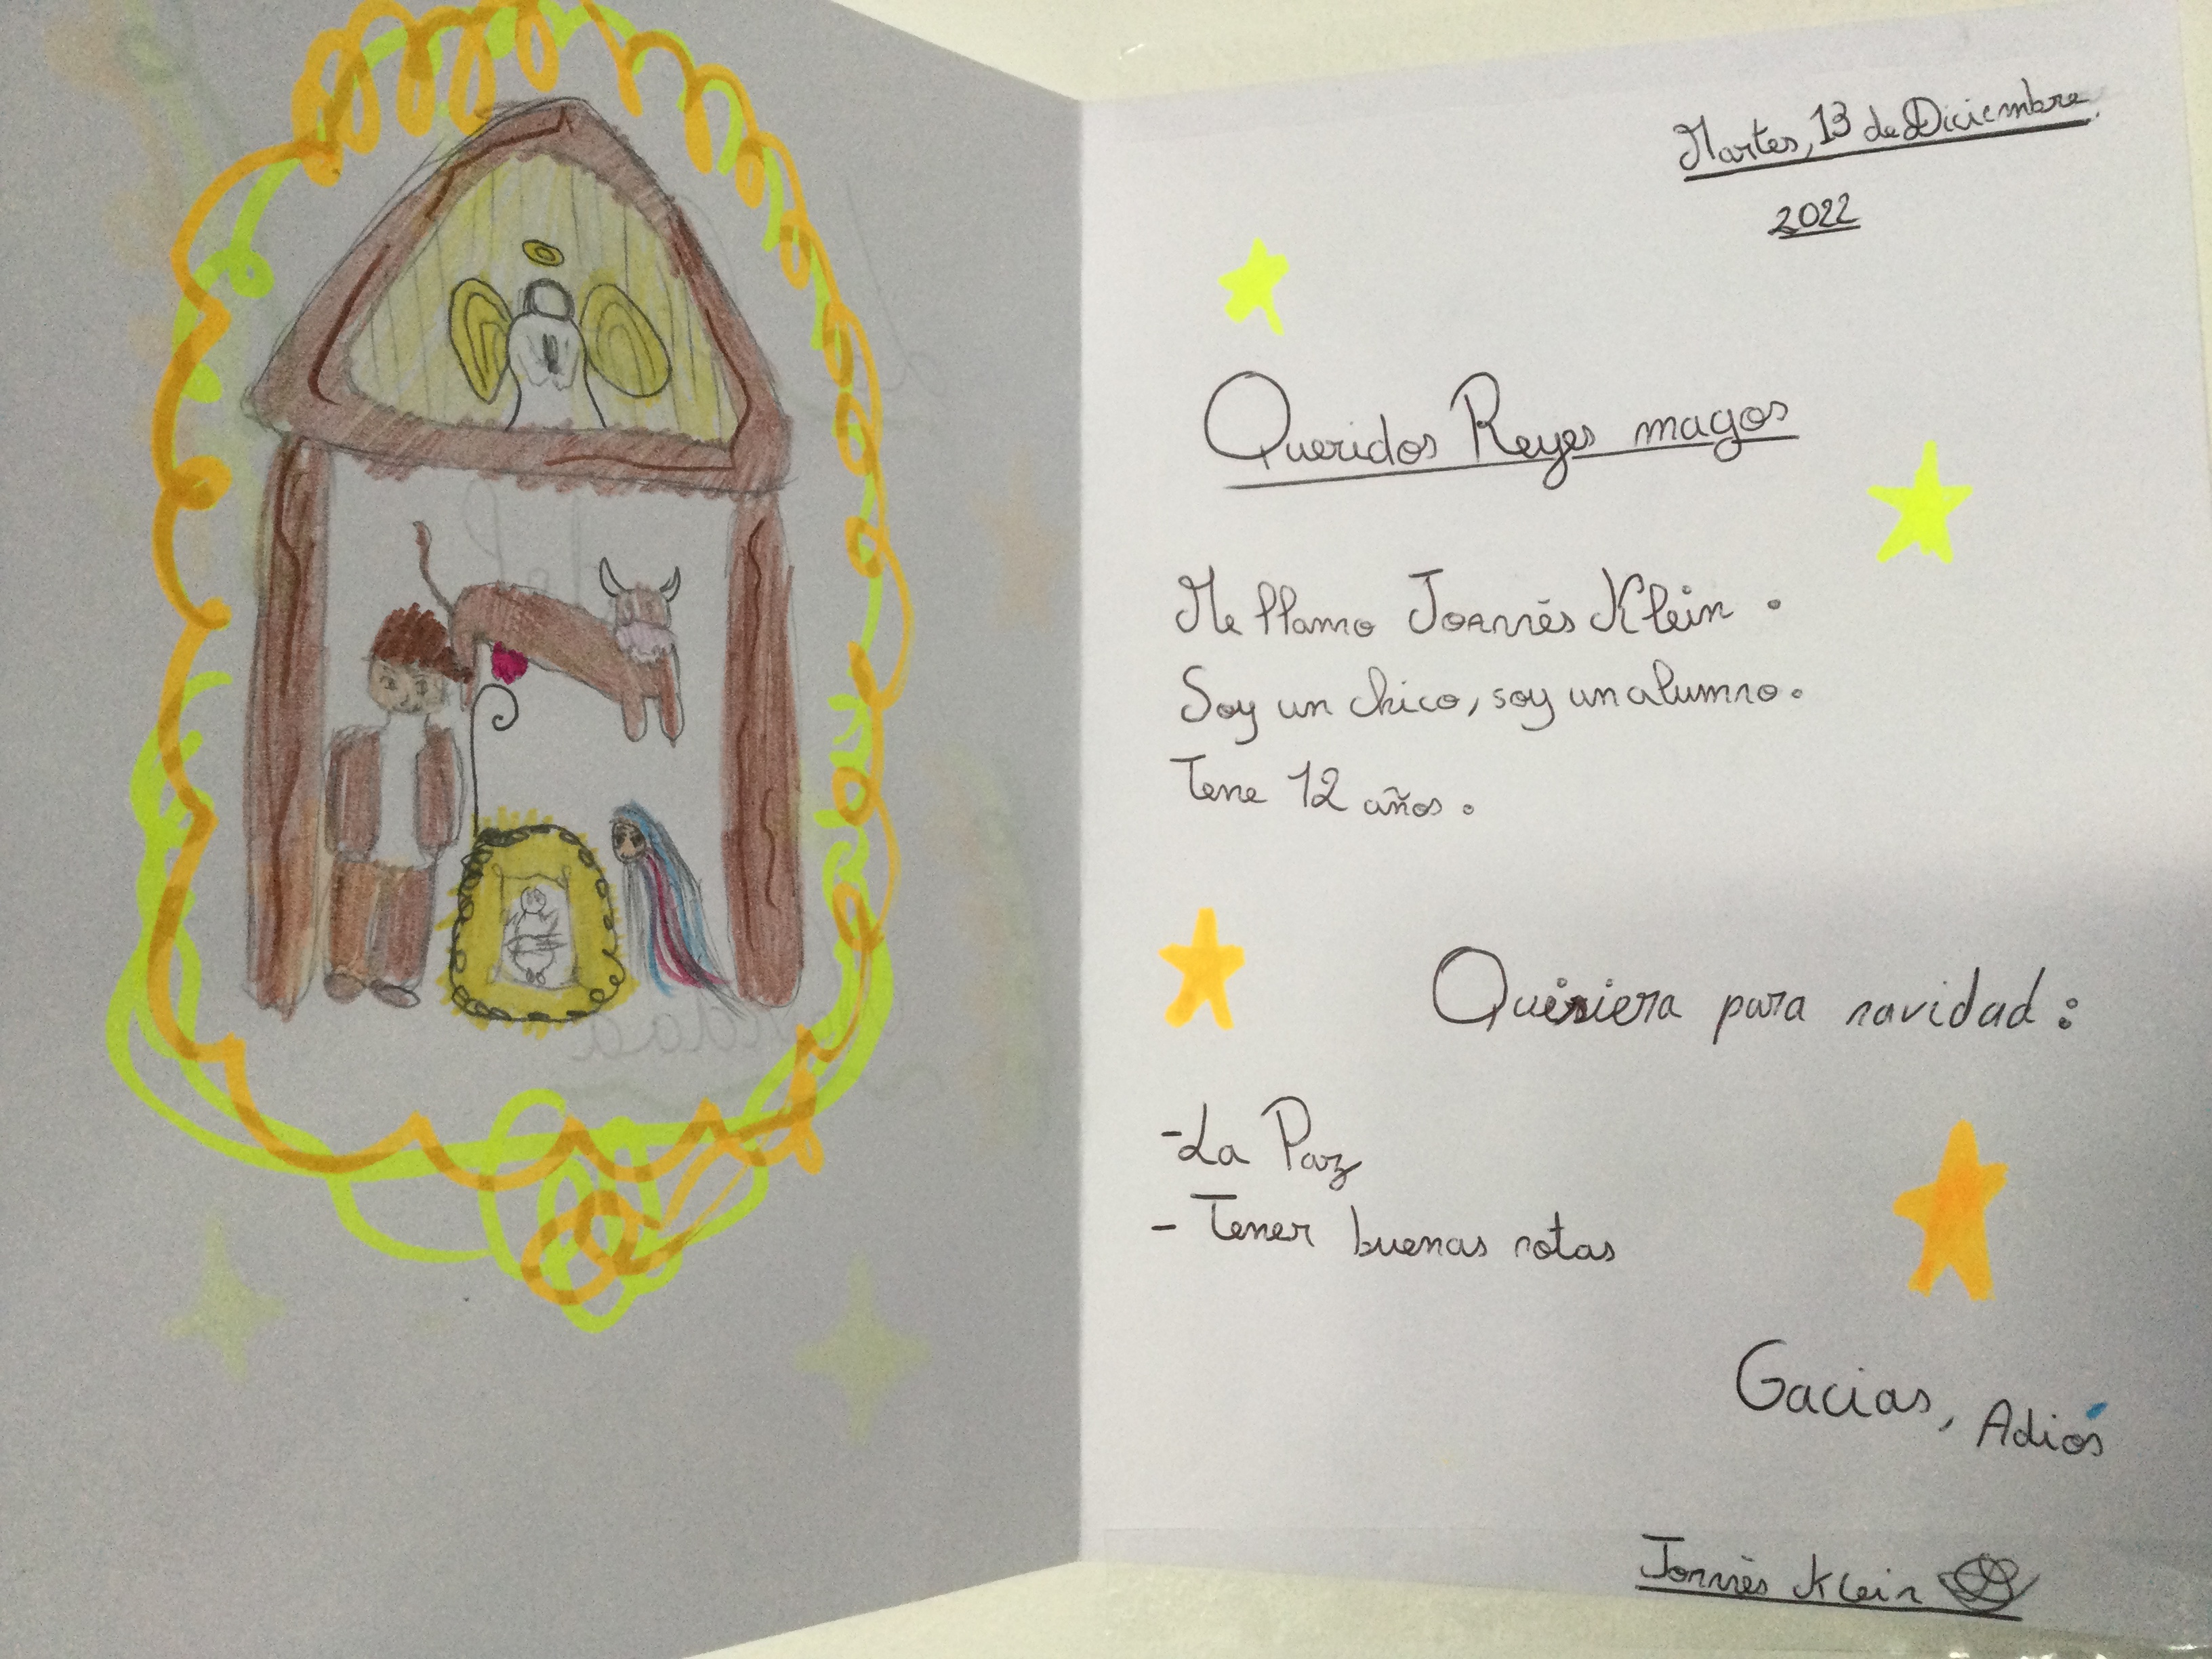 Martes, 13 de Diciembre
2022
Queridos Reyes magos
Me llamo Joannés Klein.
Soy un chico, soy un alumno.
Tene 12 años.
Quisiera para navidad:
- La Paz
- Tener buenas notas
Gacias, Adiós
Joannès Klein